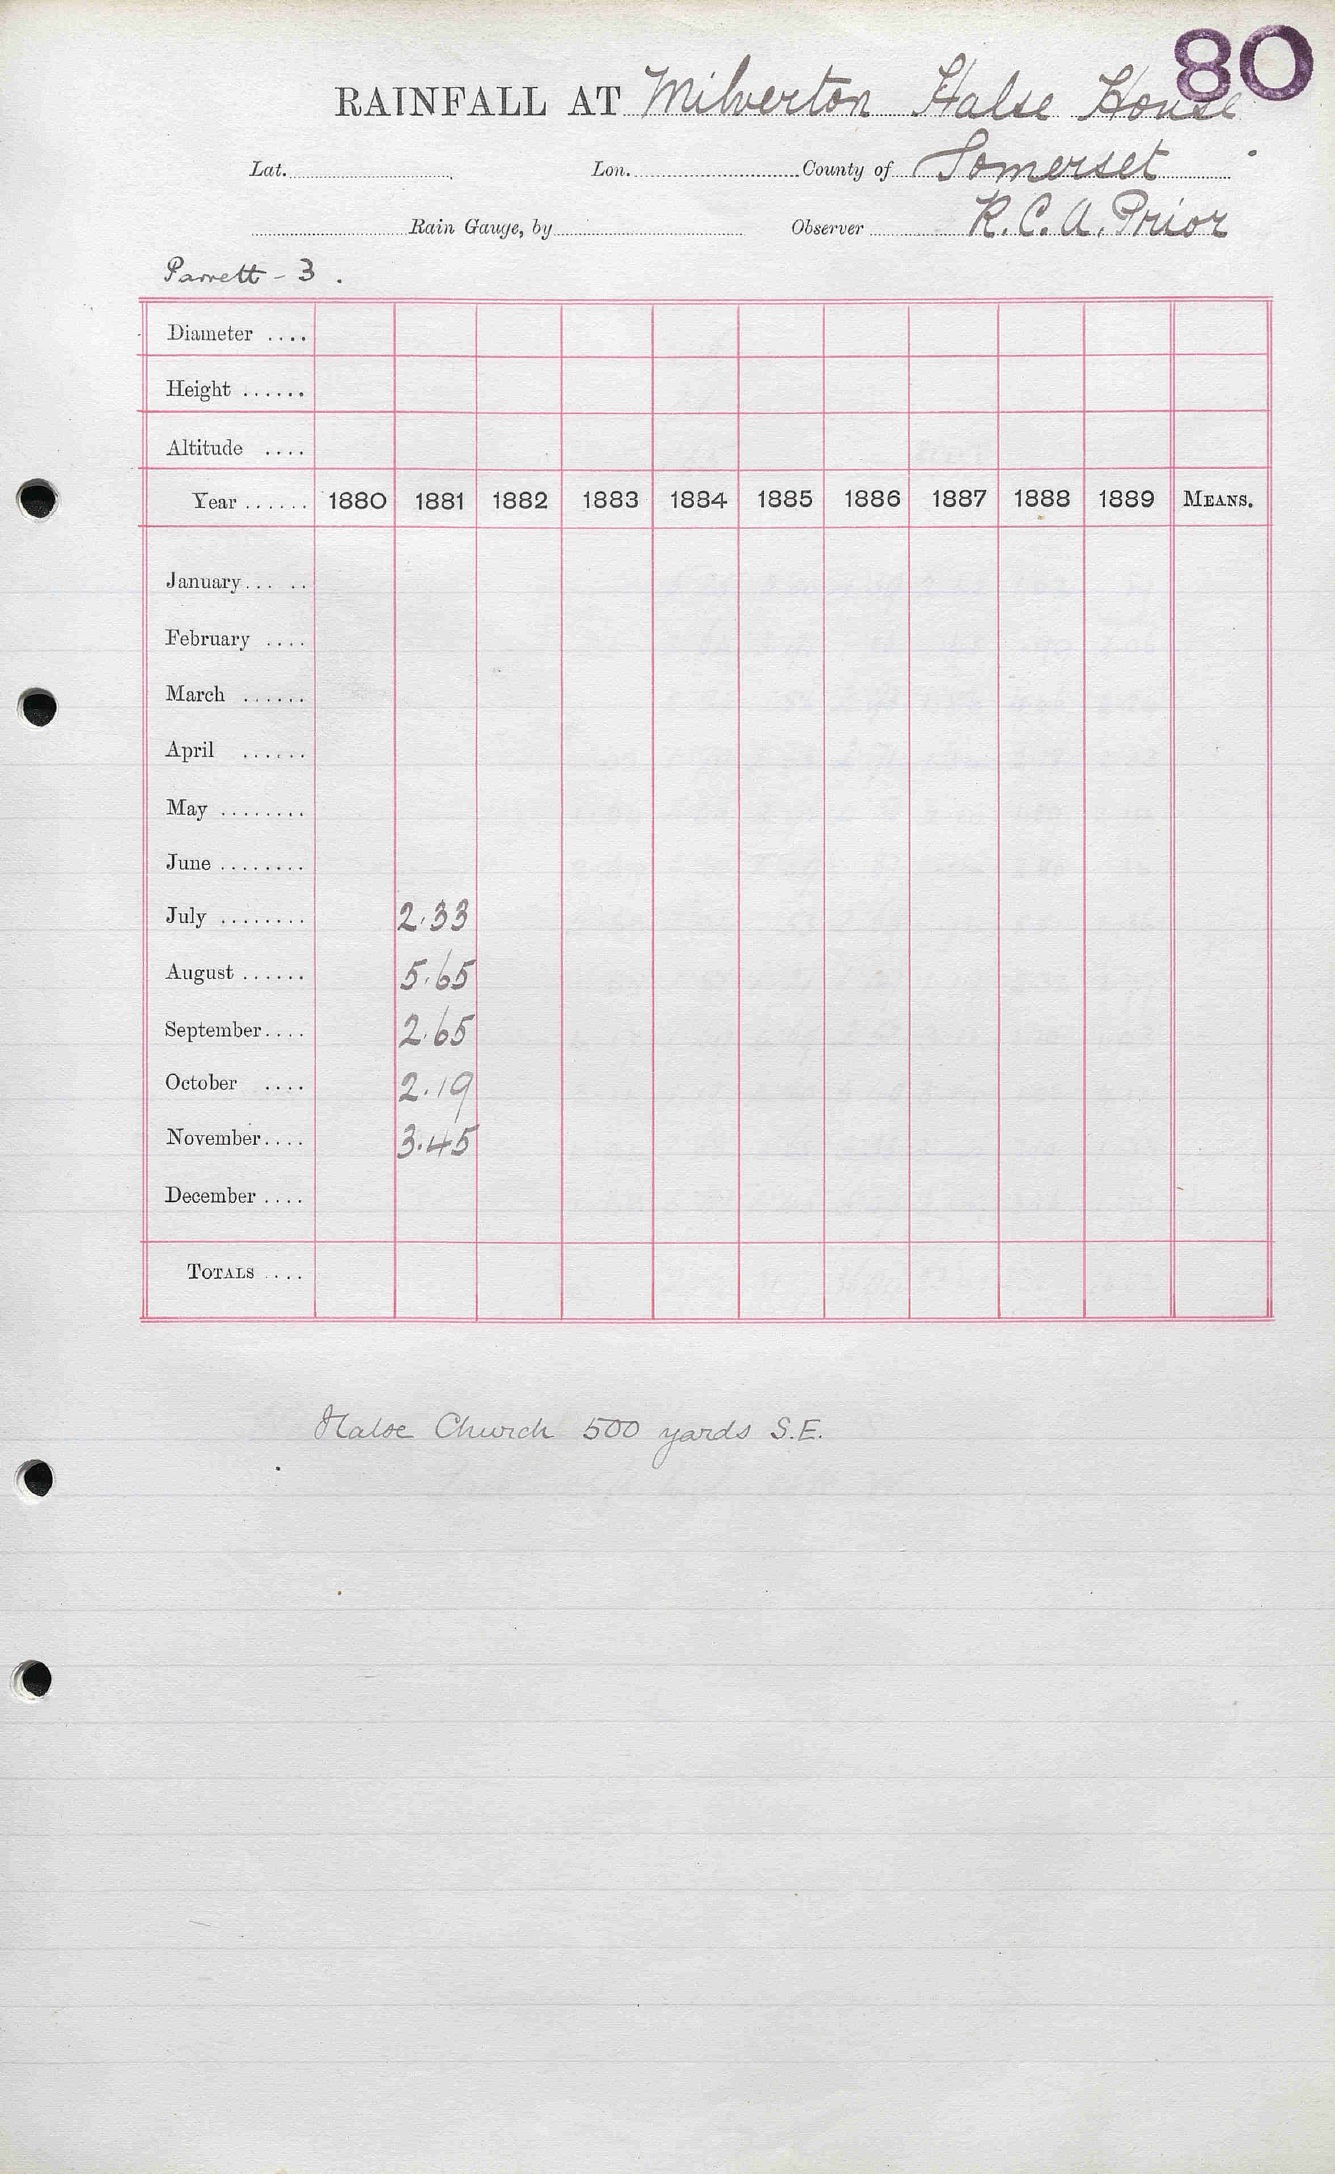 80
RAINFALL AT Milverton Halse House
Lat. Lon. County of Somerset
Rain Gauge, by Observer R. C. A. Prior
Parrett - 3 .
Diameter ....
Height ......
Altitude ....
Year ...... 1880 1881 1882 1883 1884 1885 1886 1887 1888 1889 MEANS.
January... ..
February ....
March ......
April ......
May ........
June ........
July ........ 2.33
August ...... 5.65
September.... 2.65
October .... 2.19
November.... 3.45
December ....
TOTALS ....
Halse Church 500 yards S.E.